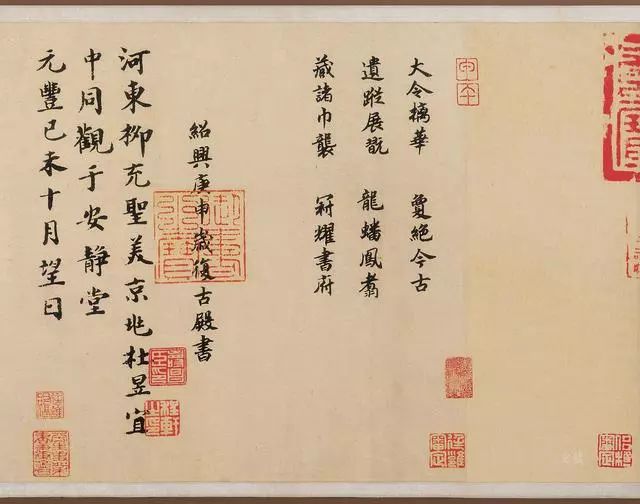 大令摛華 夐絕今古
遺蹤展翫 龍蟠鳳翥
藏諸巾襲 冠耀書府
紹興庚申歲復古殿書
河東柳充聖美京兆杜昱宜
中同觀于安靜堂
元豐己未十月望日